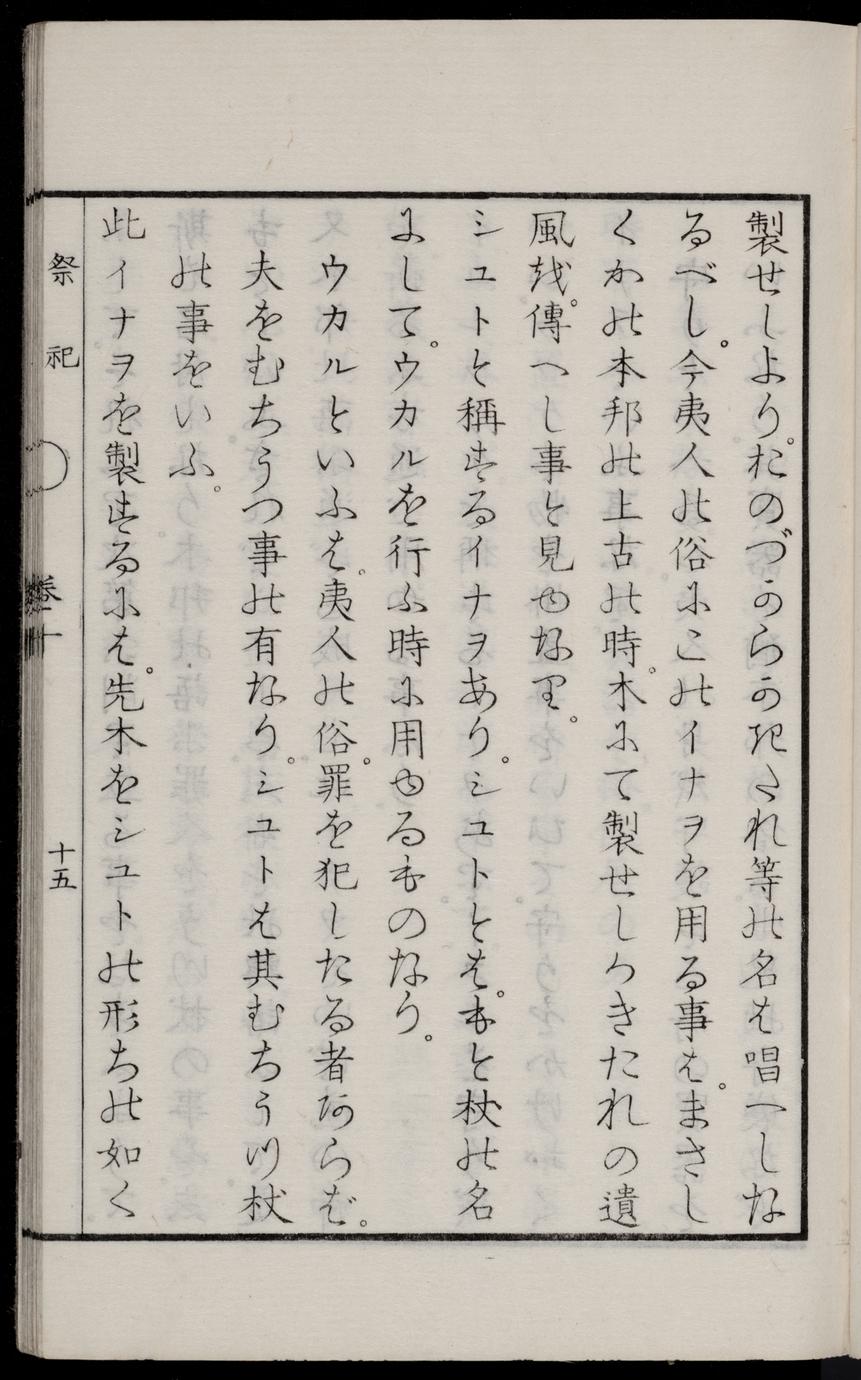 製せしより。おのづからかきたれ等の名は唱へしな
るべし。今夷人の俗にこのイナヲを用る事は。まさし
くかの本邦の上古の時。木にて製せしかきたれの遺
風を。傳へし事と見ゆなり。
シユトと稱するイナヲあり。シユトとは。もと杖の名
にして。ウカルを行ふ時に用ゆるものなり。
ウカルといふは。夷人の俗。罪を犯したる者あらば。
夫をむちうつ事の有なり。シユトは其むちうつ杖
の事をいふ。
此イナヲを製するには。先木をシユトの形ちの如く
祭祀
卷十
十五